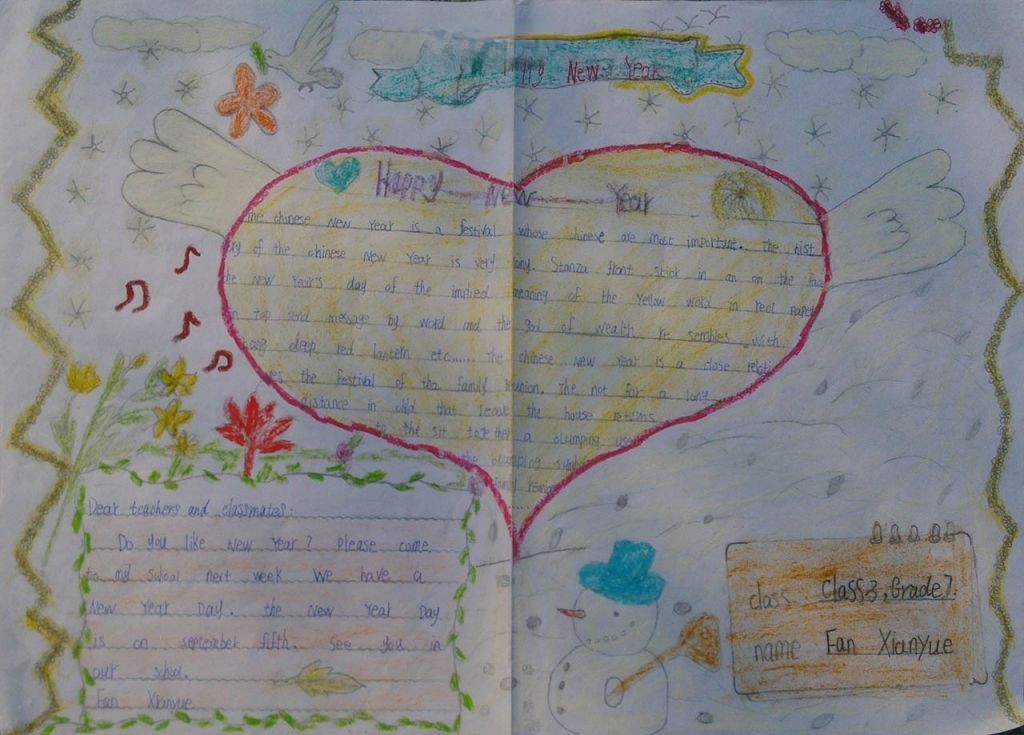 Happy New Year
Happy New Year
the chinese New Year is a festival whose chinese are most important. The hist
ory of the chinese New Year is very long. Stanza front stick in an on the fac
the new Year's day of the implied meaning of the Yellow word in red paper
on top send message by word and the god of wealth With
hang deep red lantern etc...... The chinese new Year is a close relat
ives the festival of the family reunion. The not for a long
distance in child that leave the house returns
to the sit together a dumping
the dumping
Dear teachers and classmates:
Do you like New Year? Please come
to my school next week We have a
New Year Day. the New Year Day
is on september fifth. See you in
our school.
Fan Xianyue
class Class3,Grade7.
name Fan Xianyue